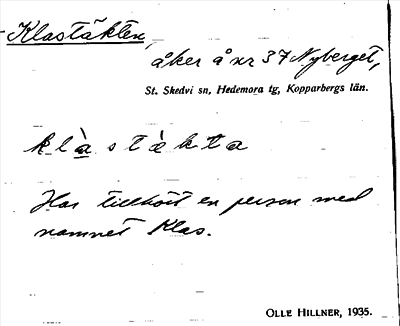 Klastäkten,
åker å nr 37 Nyberget,
St. Skedvi sn, Hedemora tg, Kopparbergs län.
klàstàkta
Har tillhört en person med
namnet Klas.
OLLE HILLNER, 1935.